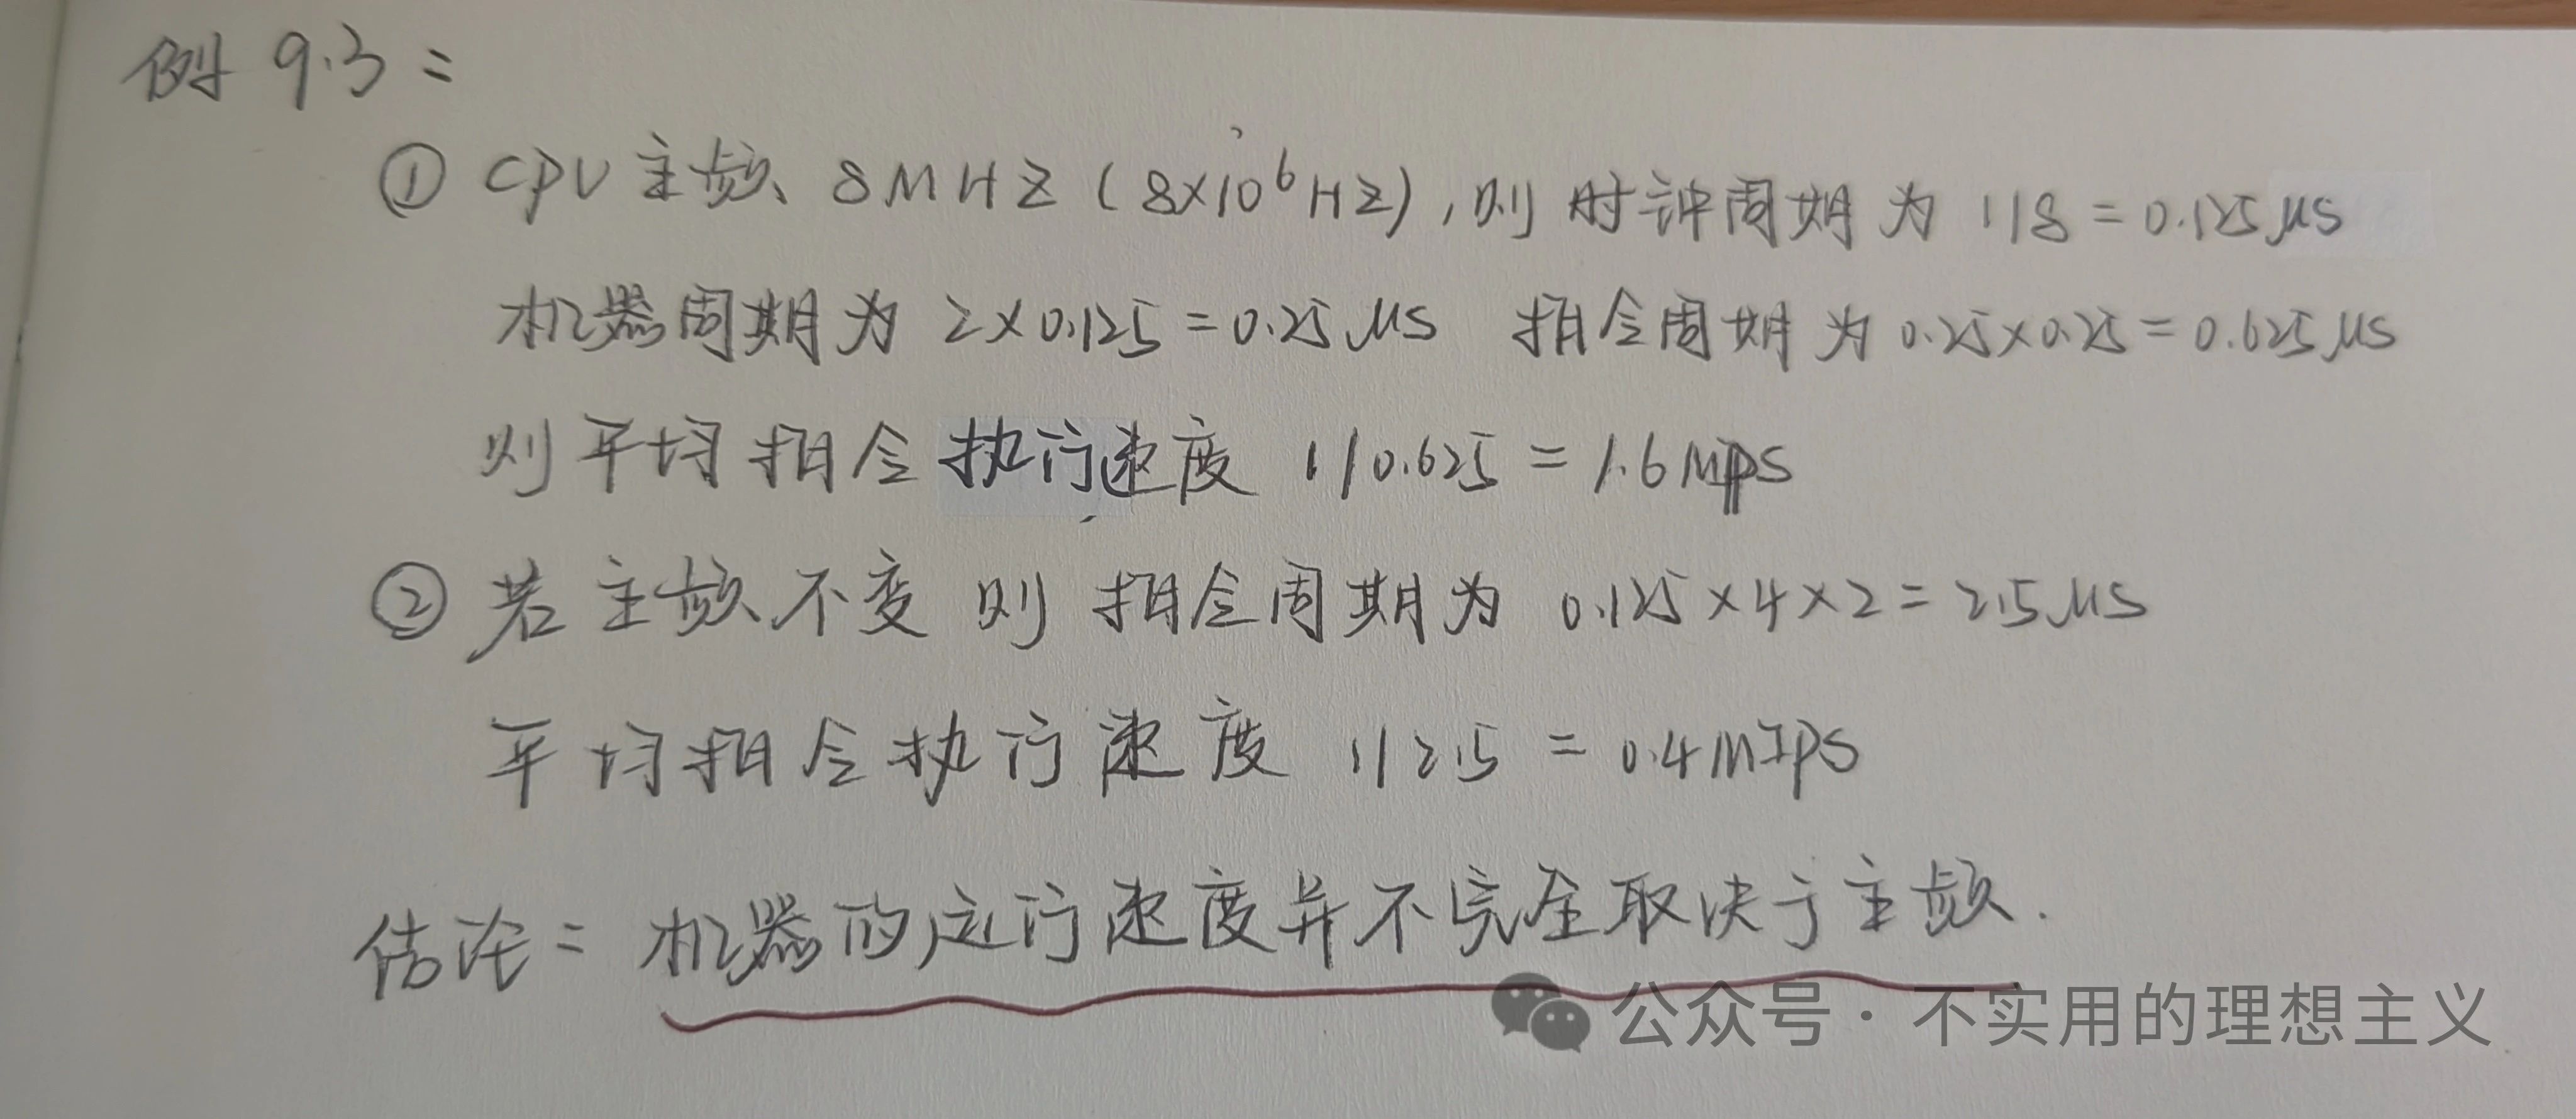 例 9.3：
① CPU 主频、8MHZ（8×10⁶HZ），则时钟周期为 1/8 = 0.125μs
机器周期为 2×0.125 = 0.25μs 指令周期为 0.25×0.25 = 0.625μs
则平均指令执行速度 1/0.625 = 1.6MIPS
② 若主频不变 则 指令周期为 0.125×4×2 = 2.5μs
平均指令执行速度 1/2.5 = 0.4MIPS
结论：机器的运行速度并不完全取决于主频.
公众号·不实用的理想主义